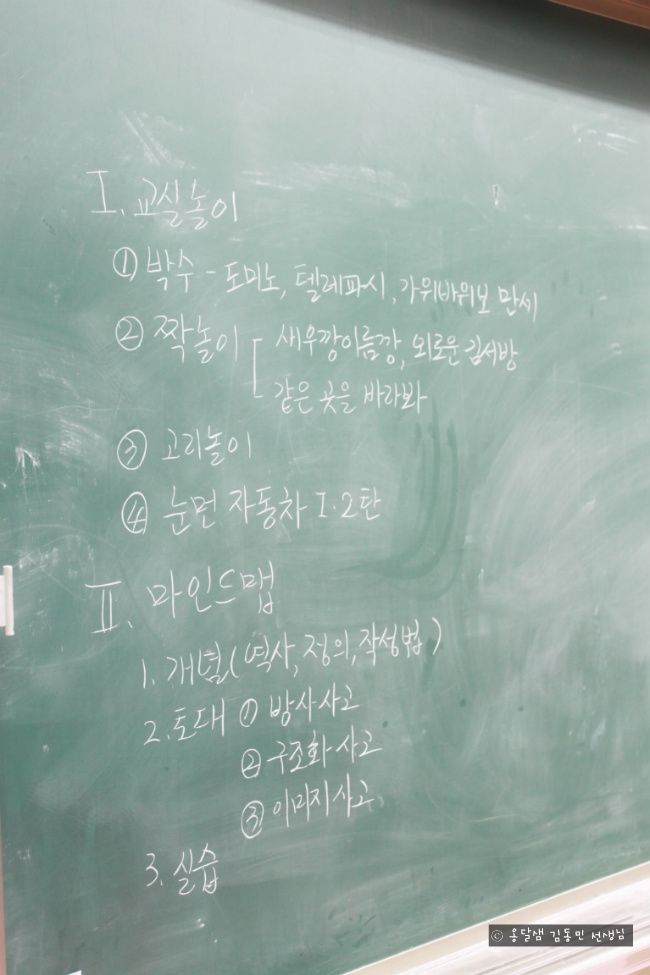 Ⅰ. 교실놀이
① 박수 - 도미노, 텔레파시, 가위바위보 만세
② 짝놀이 [ 새우깡이름깡, 외로운 김서방
같은 곳을 바라봐
③ 고리놀이
④ 눈먼 자동차 Ⅰ·2탄
Ⅱ. 마인드맵
1. 개념(역사, 정의, 작성법)
2. 토대 ① 방사사고
② 구조화사고
③ 이미지사고
3. 실습
© 옹달샘 김동민 선생님